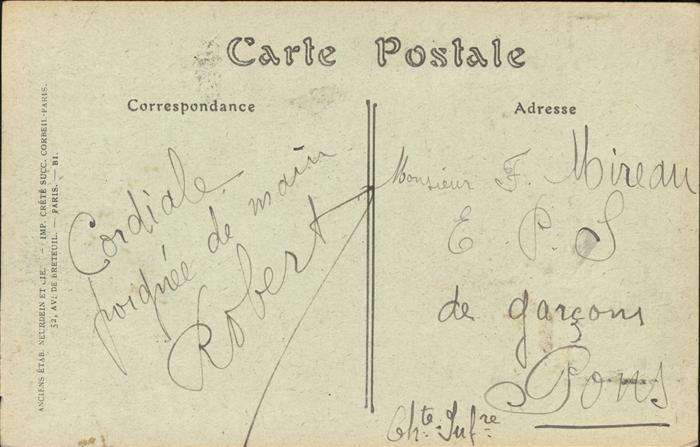 Carte Postale
Correspondance
Adresse
ANCIENS ÉTAB. NEURDEIN ET CIE. — IMP. CRÉTÉ SUCC. CORBEIL-PARIS.
52, AV. DE BRETEUIL. — PARIS. — BI.
Cordiale
poignée de main
Robert
Monsieur F. Mireau
E P. S
de garçons
Pons
Chte Infre